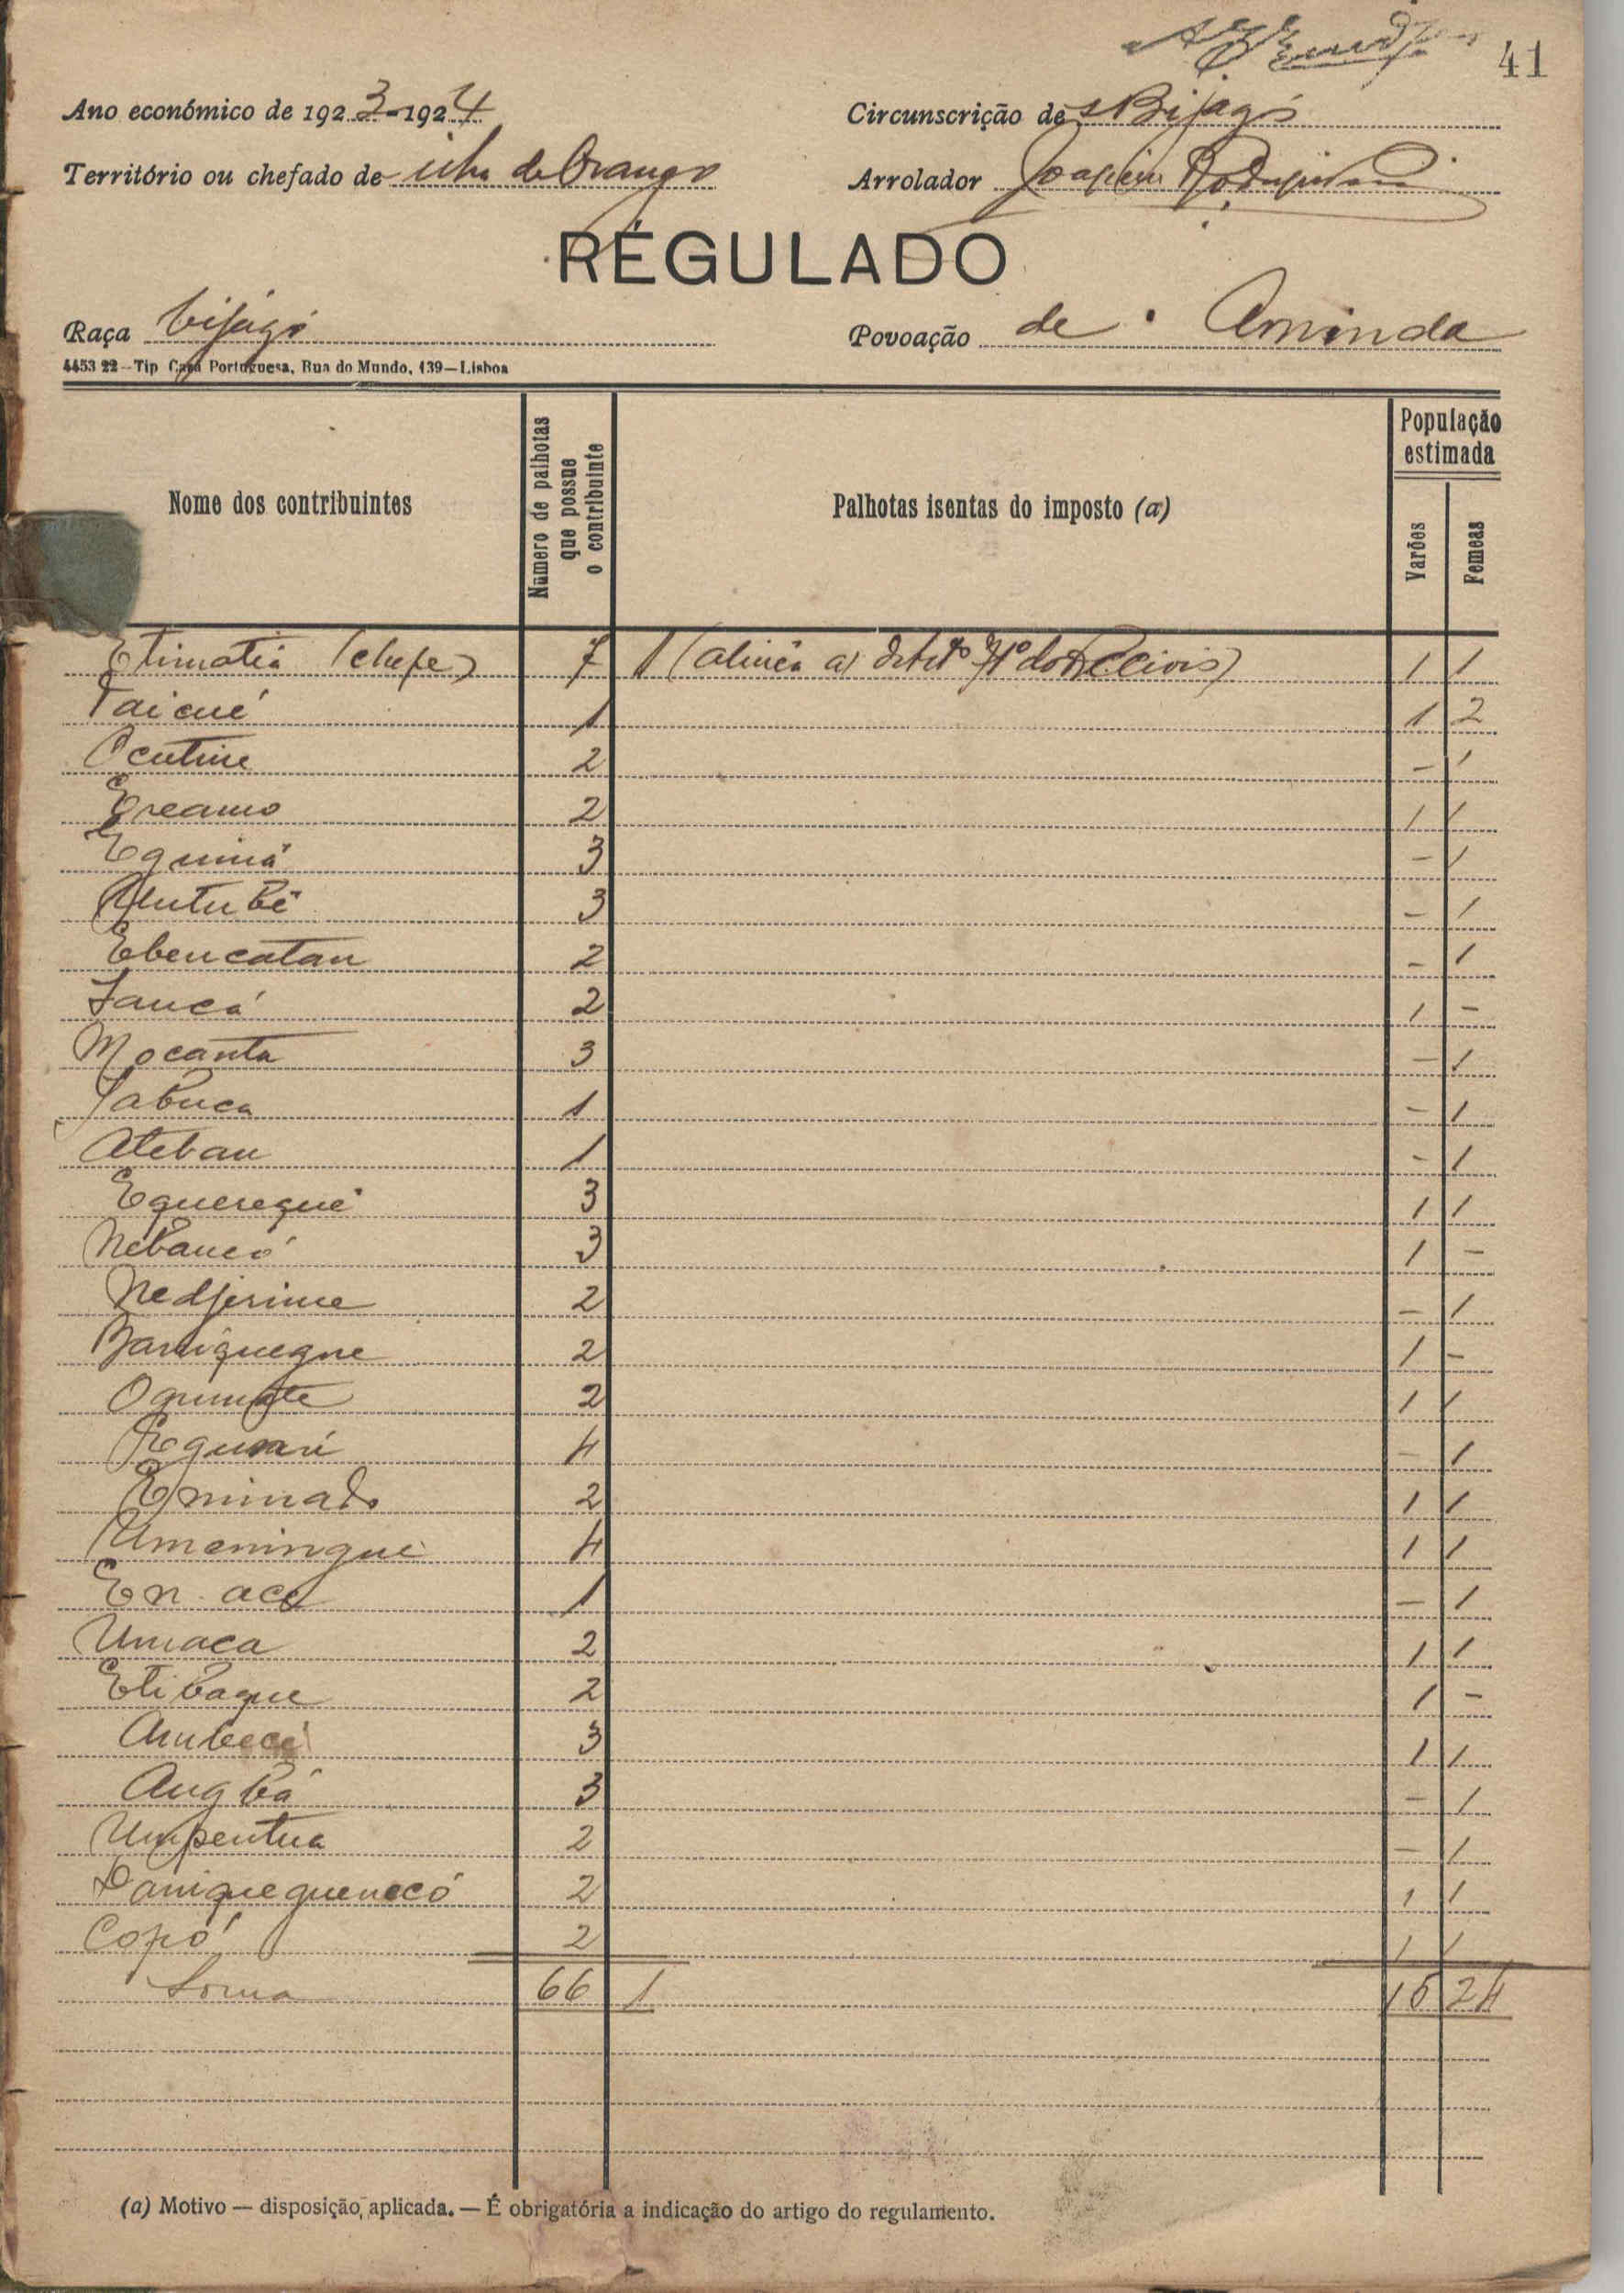 41
Ano económico de 1923-1924 Circunscrição de Bijagós
Território ou chefado de ilha de Orango Arrolador Joaquim
REGULADO
Raça bijagó Povoação de Aminda
4453 22—Tip Casa Portuguesa, Rua do Mundo, 139—Lisboa
Nome dos contribuintes Número de palhotas que possue o contribuinte Palhotas isentas do imposto (a) População estimada Varões Femeas
Etimatia (chefe) 7 1 (alinea a) do Civis) 1 1
Taicué 1 1 2
Ocutine 2 - 1
Ereamo 2 1 1
Eguiná 3 - 1
3 - 1
Ebencatan 2 - 1
Iancá 2 1 -
Mocanta 3 - 1
Jabuca 1 - 1
Ateban 1 - 1
Equerequé 3 1 1
Nébancó 3 1 -
Nedjerime 2 - 1
2 1 -
2 1 1
4 - 1
Eminado 2 1 1
Umaningué 4 1 1
En-aco 1 - 1
Umaca 2 1 1
Etibaque 2 1 -
3 1 1
Angbá 3 - 1
Umpentua 2 - 1
2 1 1
Copó 2 1 1
Soma 66 1 15 24
(a) Motivo — disposição aplicada. — É obrigatória a indicação do artigo do regulamento.